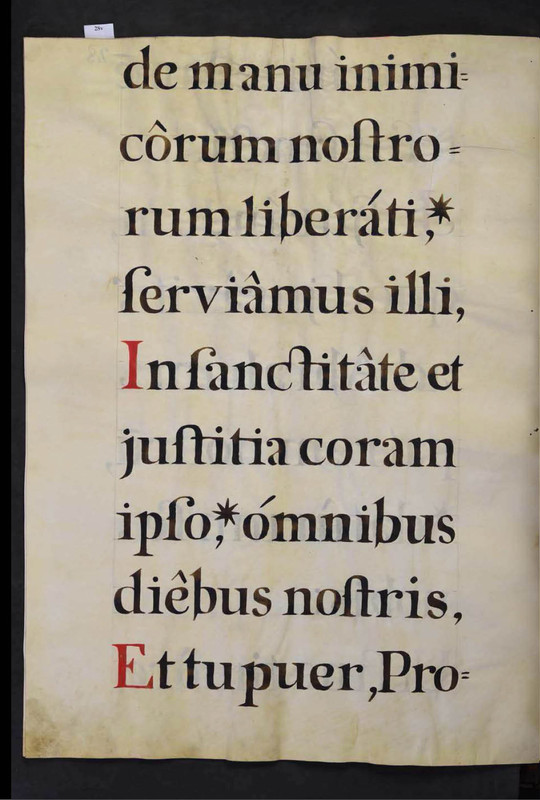 de manu inimi=
côrum noſtro=
rum liberáti,*
ſerviâmus illi,
In ſanctitâte et
juſtitia coram
ipſo,* ómnibus
diêbus noſtris,
Et tu puer, Pro=